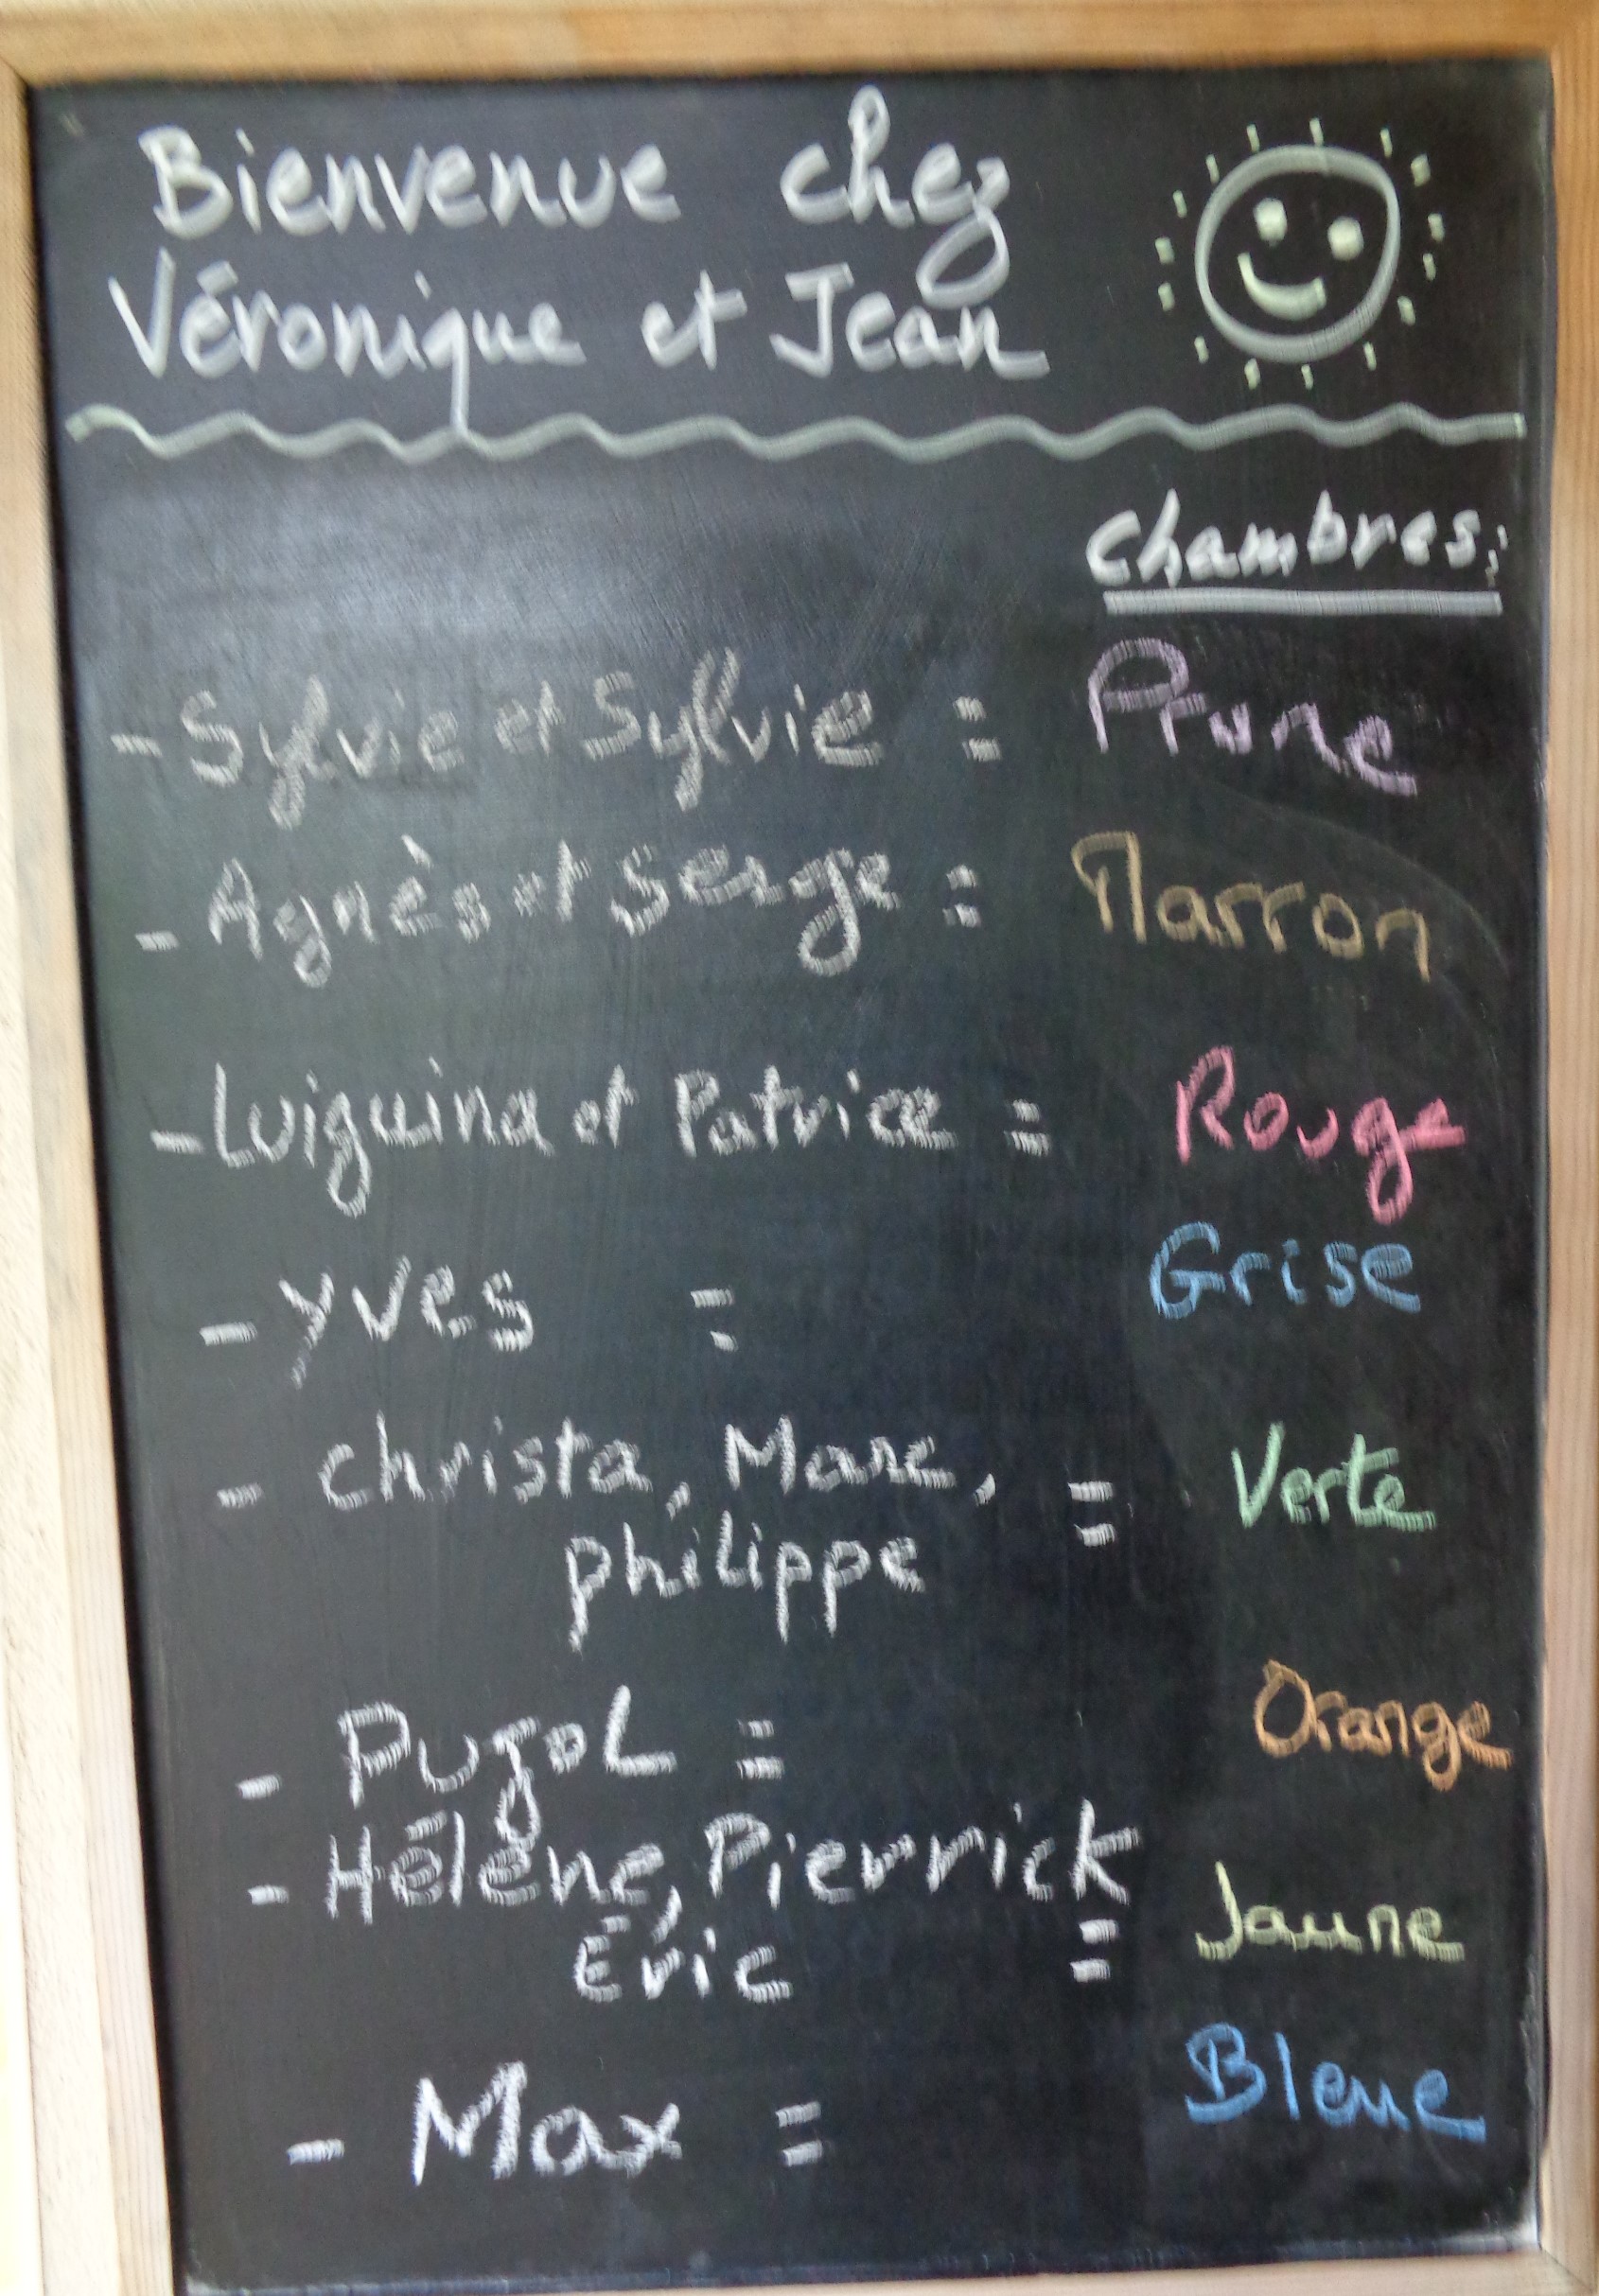 Bienvenue chez
Véronique et Jean
chambres:
- Sylvie et Sylvie = Prune
- Agnès et Serge = Marron
- Luiguina et Patrice = Rouge
- Yves = Grise
- Christa, Marc, = Verte
philippe
- Pujol = Orange
- Hélène, Pierrick
Éric = Jaune
- Max = Bleue